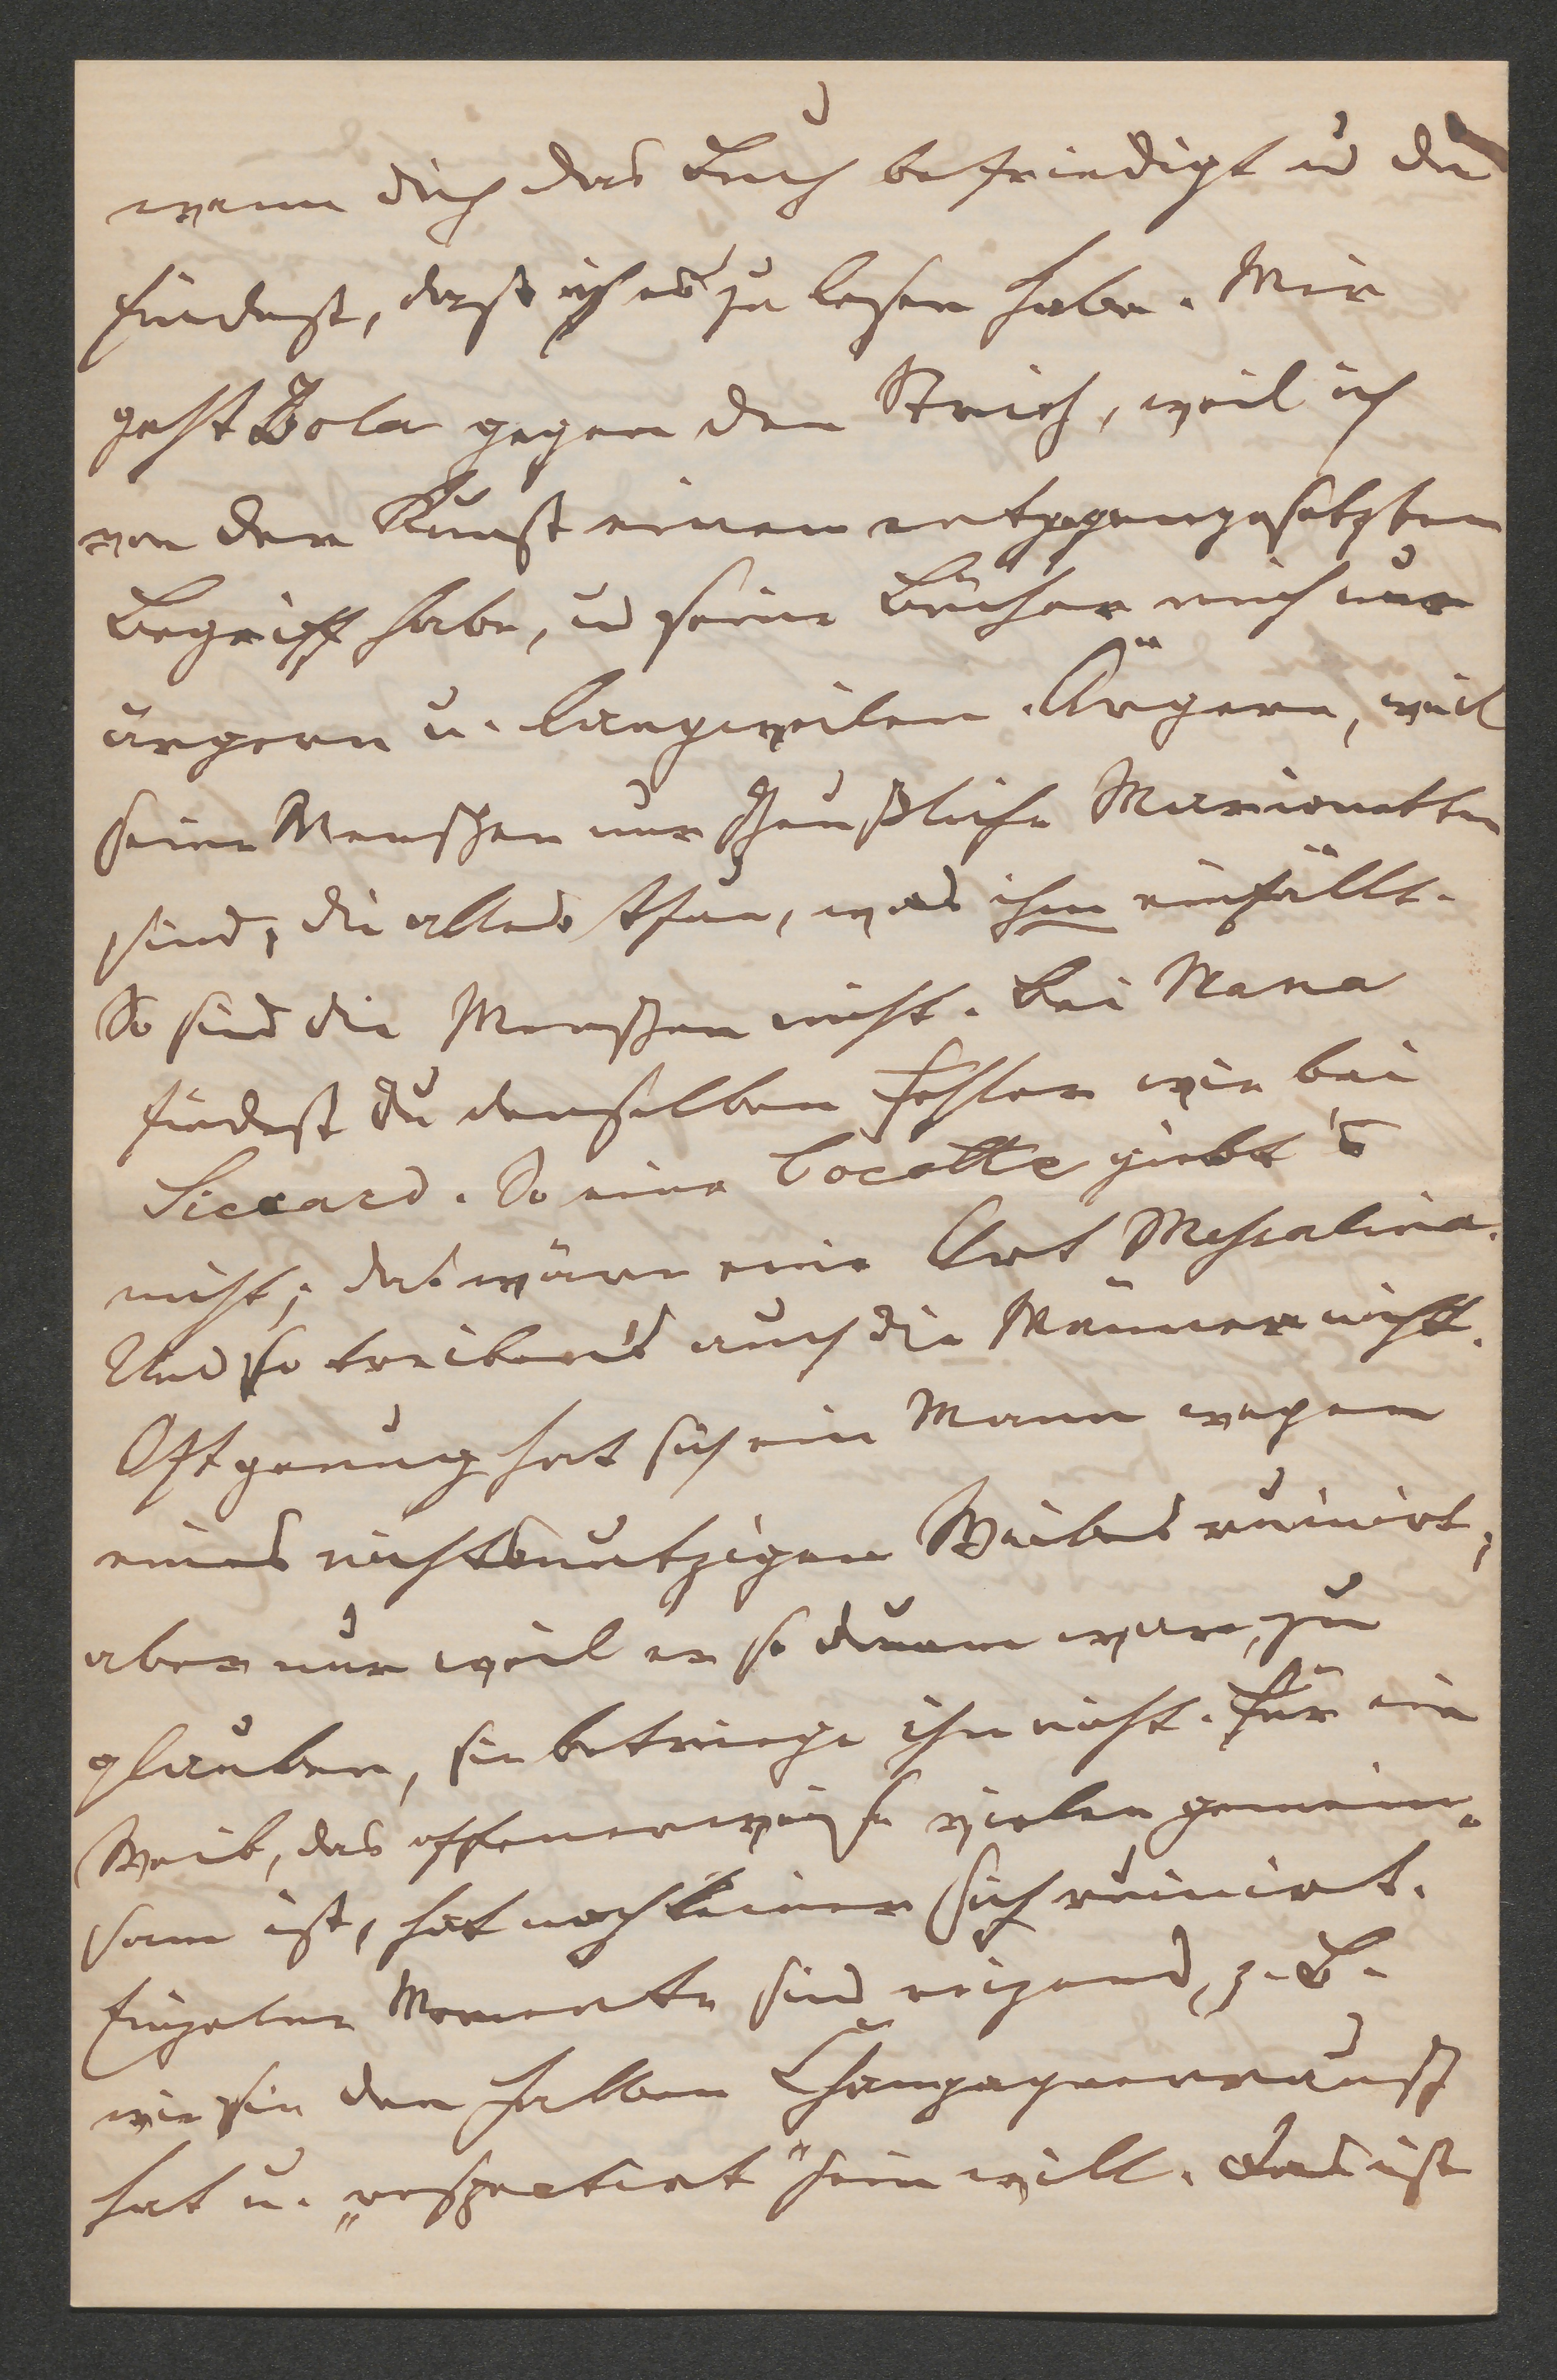 wenn dich das Buch befriedigt u du
findest, dass ich es zu lesen habe. Mir
geht Zola gegen den Strich, weil ich
von der Kunst einen entgegengesetzten
Begriff habe, u seine Bücher mich nur
ärgern u. langweilen. Ärgern, weil
seine Menschen nur scheußliche Marionetten
sind, die alles thun, was ihm einfällt.
So sind die Menschen nicht. Bei Nana
findest du denselben Fehler wie bei
Siccard. So eine Cocotte giebt's
nicht; das wäre eine Art Messalina.
Und so treiben's auch die Männer nicht.
Oft genug hat sich ein Mann wegen
eines nichtsnutzigen Weibes ruinirt,
aber nur weil er so dumm war, zu
glauben, sie betriege ihn nicht. Für ein
Weib, das offenerweise vielen gemein-
sam ist, hat noch keiner sich ruinirt.
Einzelne Momente sind reizend, z. B.
wie sie den halben Champagnerrausch
hat u. „respectirt" sein will. Das ist